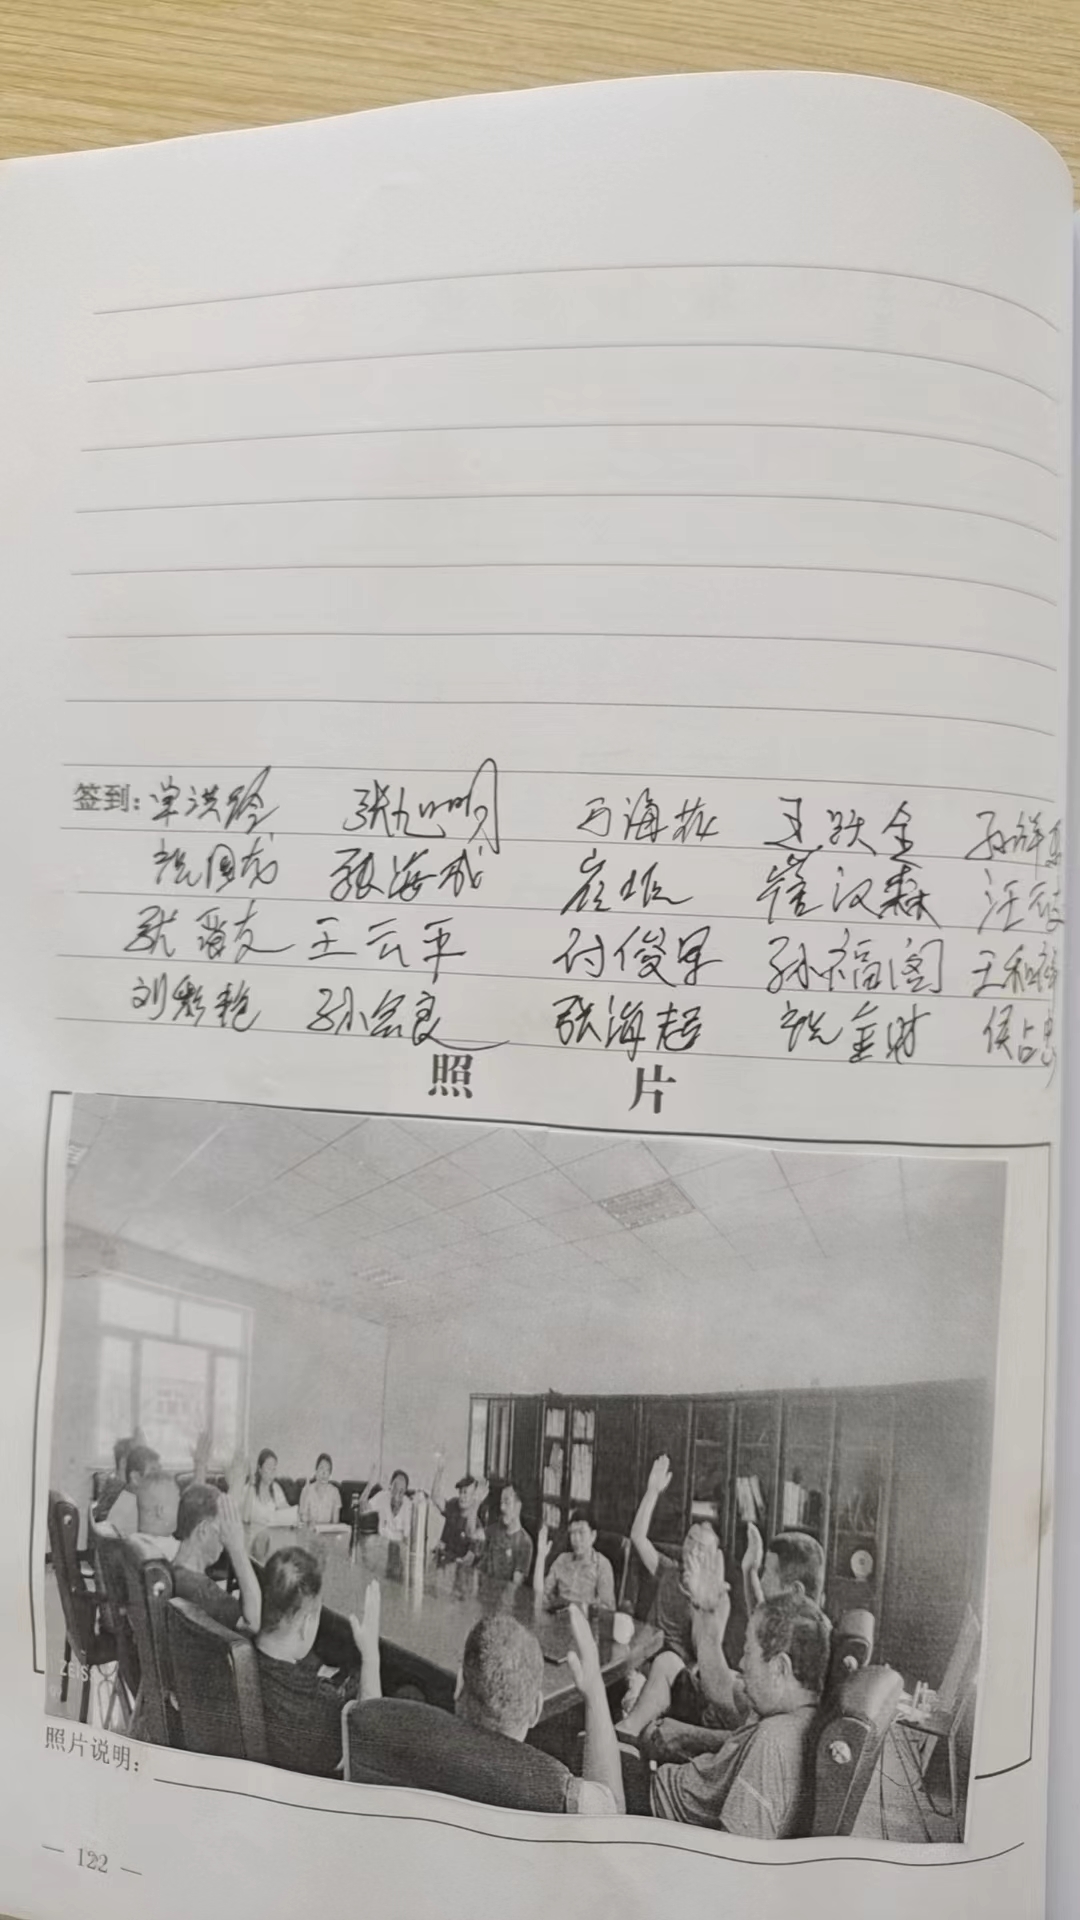 签到：单洪玲 张旭明 于海龙 王跃全 孙祥
张海成 崔 崔汉森 汪
张 友 王云平 付俊果 孙福阁 王和
刘彩艳 孙会良 张海超 金财 侯占忠
照 片
ZEISS
照片说明：
— 122 —